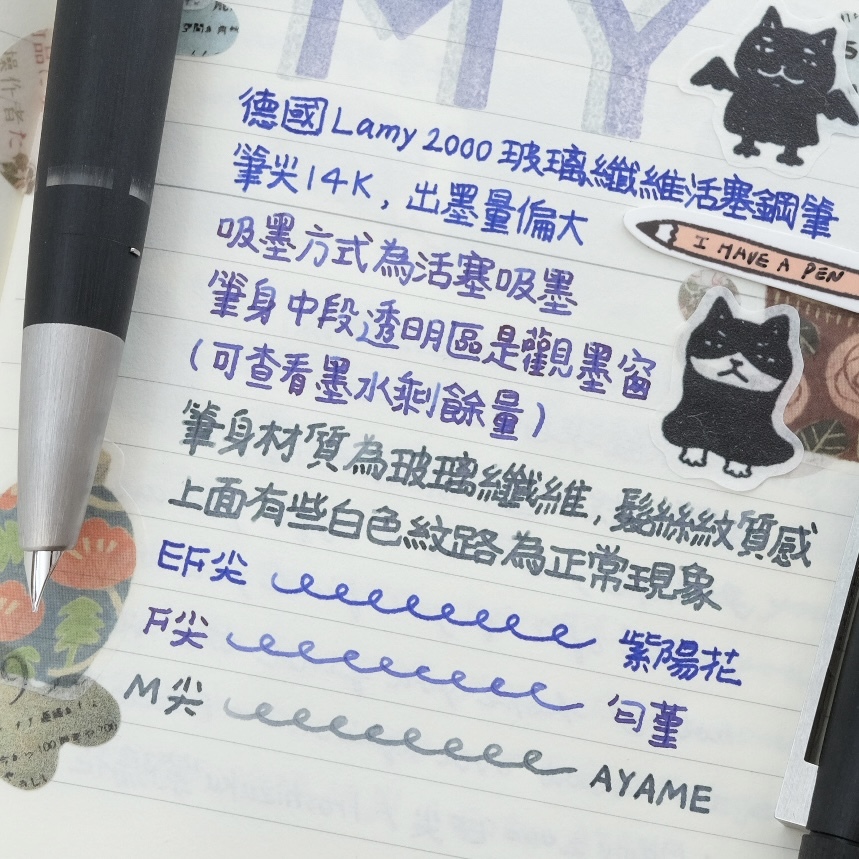 MY
德國Lamy 2000玻璃纖維活塞鋼筆
筆尖14K，出墨量偏大
I HAVE A PEN
吸墨方式為活塞吸墨
筆身中段透明區是觀墨窗
(可查看墨水剩餘量)
筆身材質為玻璃纖維，髮絲紋質感
上面有些白色紋路為正常現象
EF尖
紫陽花
F尖
匂菫
M尖
AYAME